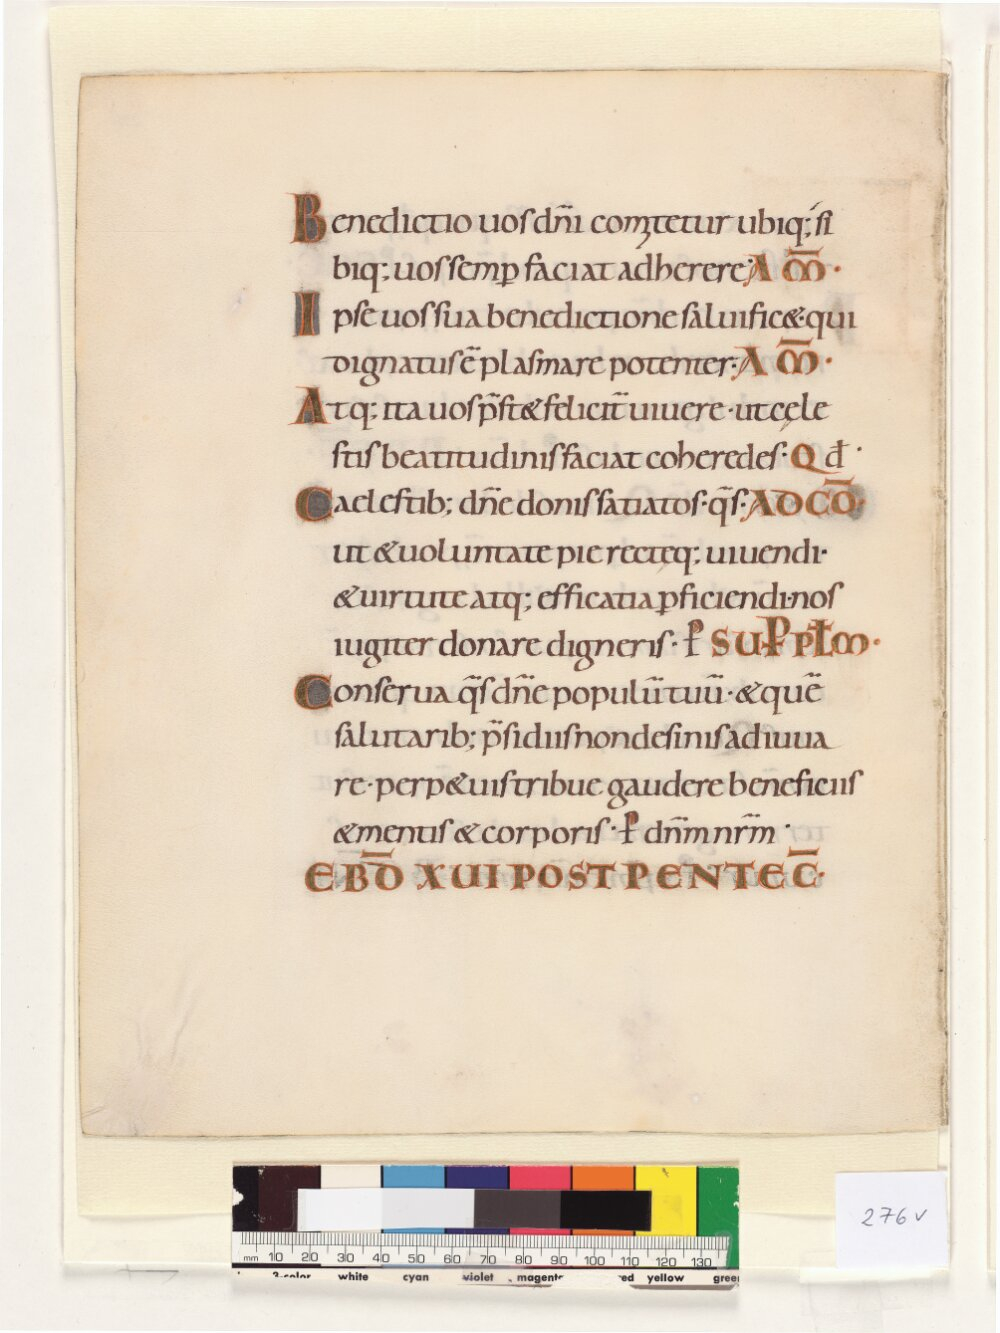 Benedictio uos dn̄i comitetur ubiq; si
biq; uos semp̱ faciat adherere· AM̄·
Ipse uos sua benedictione saluific& qui
dignatus ē plasmare potenter· AM̄·
Atq; ita uos p̄st& felicit̄ uiuere· ut cęle
stis beatitudinis faciat coheredes· Q đ·
Caelestib; dn̄e donis satiatos· q̄s· AD CŌ·
ut & uoluntate pie recteq; uiuendi·
& uirtute atq; efficatia p̱ficiendi· nos
iugiter donare digneris· P SUP PPLM·
Conserua q̄s dn̄e populū tuū· & quē
salutarib; p̄sidiis non desinis adiuua
re· perp&uis tribue gaudere beneficiis
& mentis & corporis· P dn̄m nr̄m·
EBD̄ XUI POST PENTEC̄·
276 v
mm 10 20 30 40 50 60 70 80 90 100 110 120 130
3-color white cyan violet magenta red yellow green